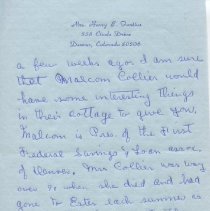 Mrs. Harry B.
Denver, Colorado 80206
a few weeks ago. I am sure
that Malcom Collier would
have some interesting things
in their cottage to give you,
Malcom is Pres. of the First
Federal Savings & Loan assoc.
of Denver. Mrs Collier was way
over 90 when she died and had
gone to Estes each summer